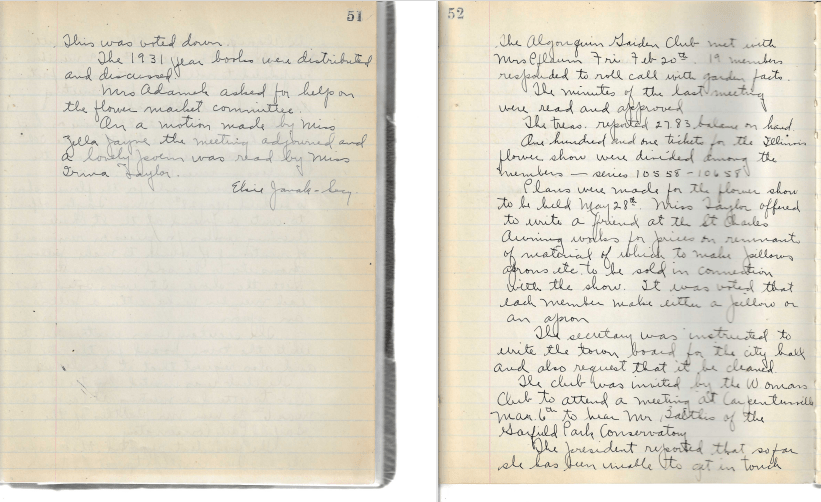 51
This was voted down.
The 1931 year books were distributed
and discussed.
Mrs Adamek asked for help on
the flower market committee.
On a motion made by Miss
Zella Jayne the meeting adjourned and
a lovely poem was read by Miss
Erma Taylor.
Elsie Janak - Secy.
52
The Algonquin Garden Club met with
Mrs Fri Feb 20th. 19 members
responded to roll call with garden facts.
The minutes of the last meeting
were read and approved
The treas. reported 27.83 balance on hand
One hundred and one tickets for the Illinois
flower show were divided among the
members — series 10558 - 10658
Plans were made for the flower show
to be held May 28th. Miss Taylor offered
to write a friend at the St Charles
Awning works for prices on remnants
of material of which to make pillows
aprons etc. to be sold in connection
with the show. It was voted that
each member make either a pillow or
an apron
The secretary was instructed to
write the town board for the city hall
and also request that it be cleaned
The club was invited by the Womans
Club to attend a meeting at Carpentersville
Mar. 6th to hear Mr. of the
Garfield Park Conservatory
The president reported that so far
she has been unable to get in touch